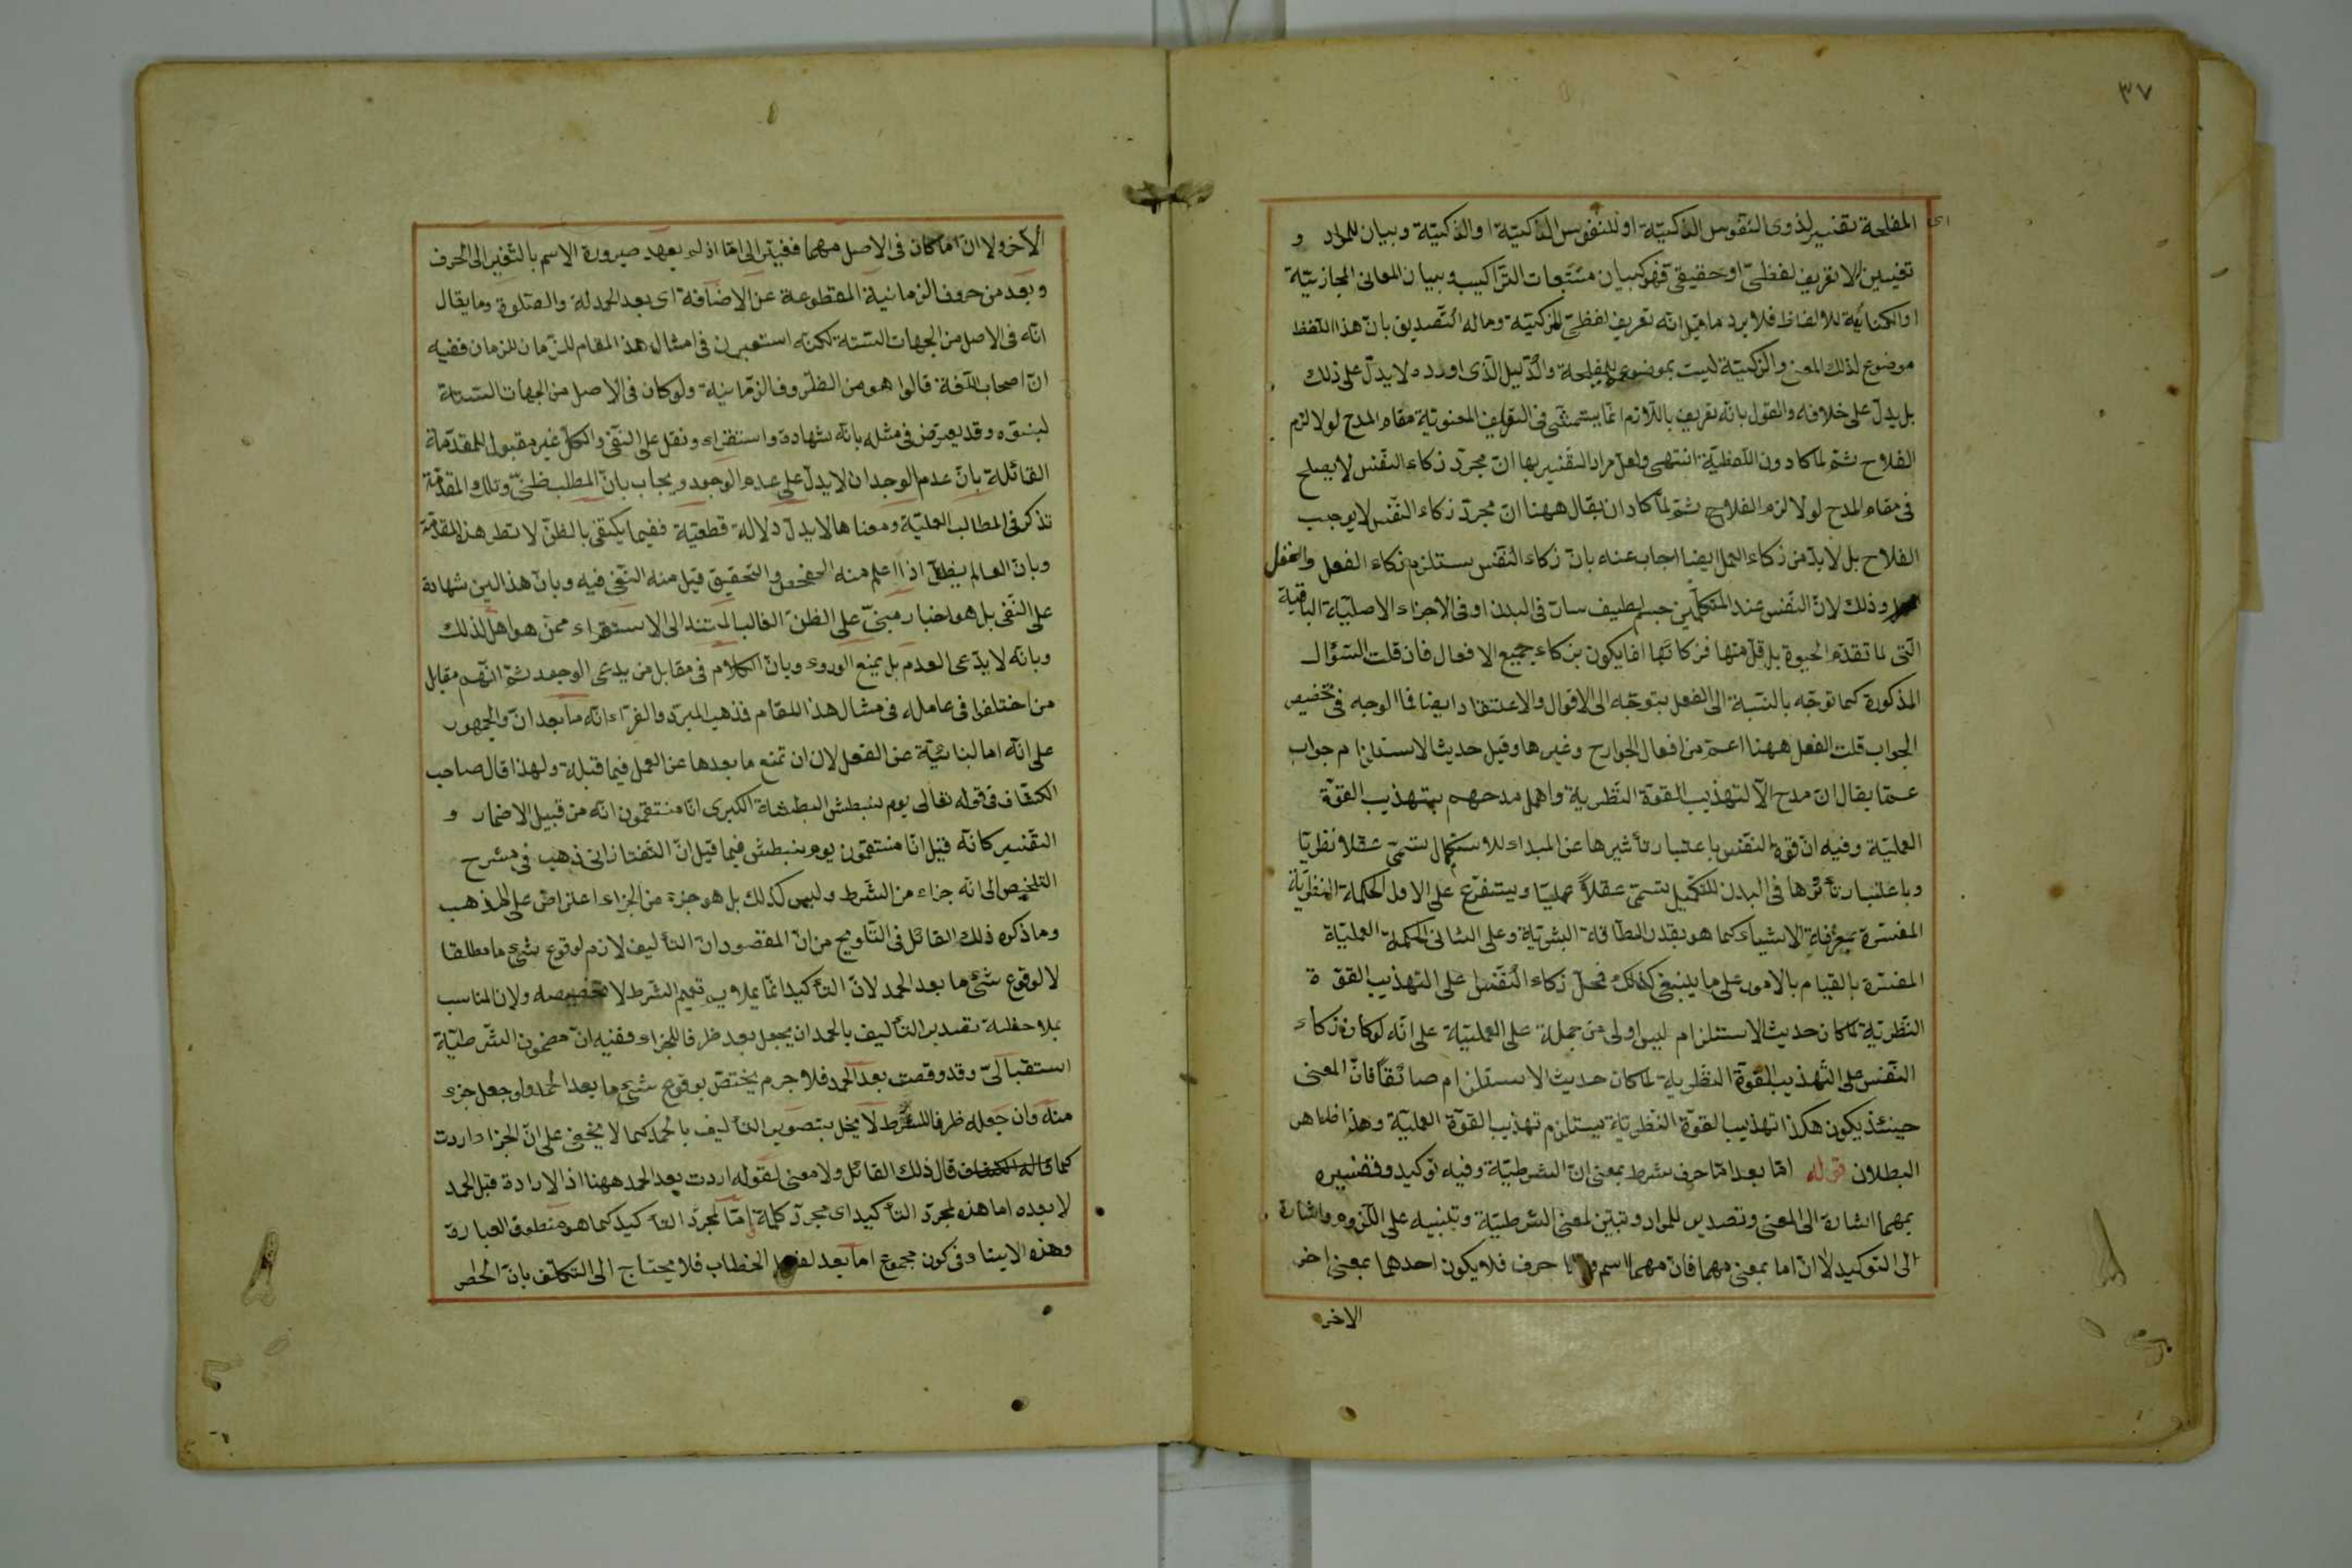 ٣٧
اى
المفلحة تفسير لذوى النفوس الذكيّة او للنفوس الذاكيّة او الذكيّة وبيان للمراد و
تفيين لا تعريف لفظىّ او حقيقى فهو كبيان مستتبعات التراكيب وبيان المعانى المجازيّة
او الكنائية للالفاظ فلا يرد ما قيل انّه تعريف لفظىّ للزكيّة وماله التّصديق بانّ هذا اللفظ
موضوع لذلك المعنى والزكيّة ليست بموضوع للمفلحة والدّليل الذى اورده لا يدلّ على ذلك
بل يدلّ على خلافه والقول بانّه تعريف باللّازم انّما يتمشّى فى التعاريف المعنويّة مقام المدح لولا لزم
الفلاح ثمّ لما كا دون اللّفظيّة انتهى ولعل مراد التفسير بها انّ مجرّد زكاء النّفس لا يصلح
فى مقام المدح لولا لزم الفلاح ثمّ لمّا كاد ان يقال ههنا انّ مجرّد زكاء النّفس لا يوجب
الفلاح بل لا بدّ من زكاء العمل ايضا اجاب عنه بانّ زكاء النّفس يستلزم زكاء الفعل والعمل
وذلك لانّ النّفس عند المتكلّمين جسم لطيف سار فى البدن او فى الاجزاء الاصليّة الباقية
الّتى لما تقدّم الحيوة بل قلّ منها فزكاتها انّما يكون بزكاء جميع الافعال فان قلت السّؤال
المذكورة كما توجّه بالنّسبة الى الفعل يتوجّه الى الاقوال والاعتقاد ايضا فما الوجه فى تخصيص
الجواب قلت الفعل ههنا اعمّ من افعال الجوارح وغيرها وقيل حديث الاستلزام جواب
عمّا يقال انّ مدح الآل لتهذيب القوّة النّظرية واهمل مدحهم بتهذيب القوّة
العمليّة وفيه انّ قوة النّفس باعتبار تأثيرها عن المبداء للاستكمال تسمّى عقلا نظريّا
وباعتبار تأثرها فى البدن للتكميل تسمّى عقلاً عمليّا ويتفرّع على الاول الحكمة النظريّة
المفسّرة بمعرفة الاشياء كما هو بقدر الطّاقة البشريّة وعلى الثانى الحكمة العمليّة
المفسّرة بالقيام بالامور على ما ينبغى كذلك فحمل زكاء النّفس على التهذيب القوّة
النّظريّة لما كان حديث الاستلزام ليس اولى من حمله على العمليّة على انّه لو كان زكاء
النّفس على التّهذيب القوّة النّظريّة لما كان حديث الاستلزام صادقاً فانّ المعنى
حينئذ يكون هكذا تهذيب القوّة النّظريّة يستلزم تهذيب القوّة العمليّة وهذا ظاهر
البطلان قوله امّا بعد امّا حرف شرط بمعنى ان الشرطيّة وفيه توكيد وتفسيره
بمهما اشارة الى المعنى وتصدير للمراد وتبيّن لمعنى الشرطيّة وتنبيه على اللّزوم واشارة
الى التوكيد لا انّ اما بمعنى مهما فانّ مهما اسم وامّا حرف فلا يكون احدهما بمعنى اخر
الاخر
الآخر ولا انّ اما كان فى الاصل مهما فغيّر الى امّا اذ لم يعهد صيرورة الاسم بالتّغير الى الحرف
وبعد من حروف الزمانية المقطوعة عن الاضافة اى بعد الحمدلة والصّلوة وما يقال
انّه فى الاصل من الجهات السّتة لكنّه استعير فى امثال هذ المقام للزّمان للزمان ففيه
انّ اصحاب اللّغة قالوا هو من الظّروف الزّمانية ولو كان فى الاصل من الجهات السّتة
لبيّنوه وقد يعترض فى مثله بانّه شهادة واستقراء ونقل على النّفى والكلّ غير مقبول للمقدّمة
القائلة بانّ عدم الوجدان لا يدلّ على عدم الوجود ويجاب بانّ المطلب ظنّىّ وتلك المقدّمة
تذكر فى المطالب العمليّة ومعناها لا يدلّ دلالة قطعيّة ففيما يكتفى بالظنّ لا تطر هذ المقدّمة
وبانّ العالم بظنّ اذا اعلم منه الفحص والتحقيق قبل منه النّفى فيه وبانّ هذا ليس شهادة
على النّفى بل هو اخبار مبنىّ على الظنّ الغالب المستند الى الاستقراء ممّن هو اهل لذلك
وبانّه لا يدّعى العدم بل يمنع الورود وبانّ الكلام فى مقابل من يدعى الوجود ثمّ انّهم مقابل
من اختلفوا فى عامله فى مثال هذا المقام فذهب المبرّد والفرّاء انّه ما بعد انّ والجمهور
على انّه اما لنائبيّة عن الفعل لان ان تمنع ما بعدها عن العمل فيما قبله ولهذا قال صاحب
الكشّاف فى قوله تعالى يوم نبطش البطشة الكبرى انّا منتقمون انّه من قبيل الاضمار و
التفسير كانّه قيل انّا منتقمون يوم نبطش فيما قيل انّ التفتازانى ذهب فى شرح
التلخيص الى انّه جزاء من الشّرط وليس كذلك بل هو جزء من الجزاء اعتراض على المذهب
وما ذكره ذلك القائل فى التّلويح من انّ المقصود انّ التأليف لازم لوقوع شئ ما مطلقا
لا لوقوع شئ ما بعد الحمد لانّ التأكيد انّما يلايم تعميم الشّرط لا تخصيصه ولان المناسب
بملاحظة تقييد التأليف بالحمد ان يجعل بعد ظرفا للجزاء ففيه انّ مضمون الشّرطيّة
استقبالىّ وقد وقعت بعد الحمد فلا جرم يختصّ بوقوع شئ ما بعد الحمد ولو جعل جزء
منه وان جعله ظرفا للشّرط لا يخل بتصوير التأليف بالحمد كما لا يخفى على انّ الجزاء اردت
كما قاله الكشاف قال ذلك القائل ولا معنى لقوله اردت بعد الحمد ههنا اذ الارادة قبل الحمد
لا بعده اما هذه لمجرّد التأكيد اى مجرّد كلمة امّا لمجرّد التأكيد كما هو منطوق العبارة
وهذه لا ينافى كون مجموع اما بعد لفصل الخطاب فلا يحتاج الى التكلّف بانّ الحصر